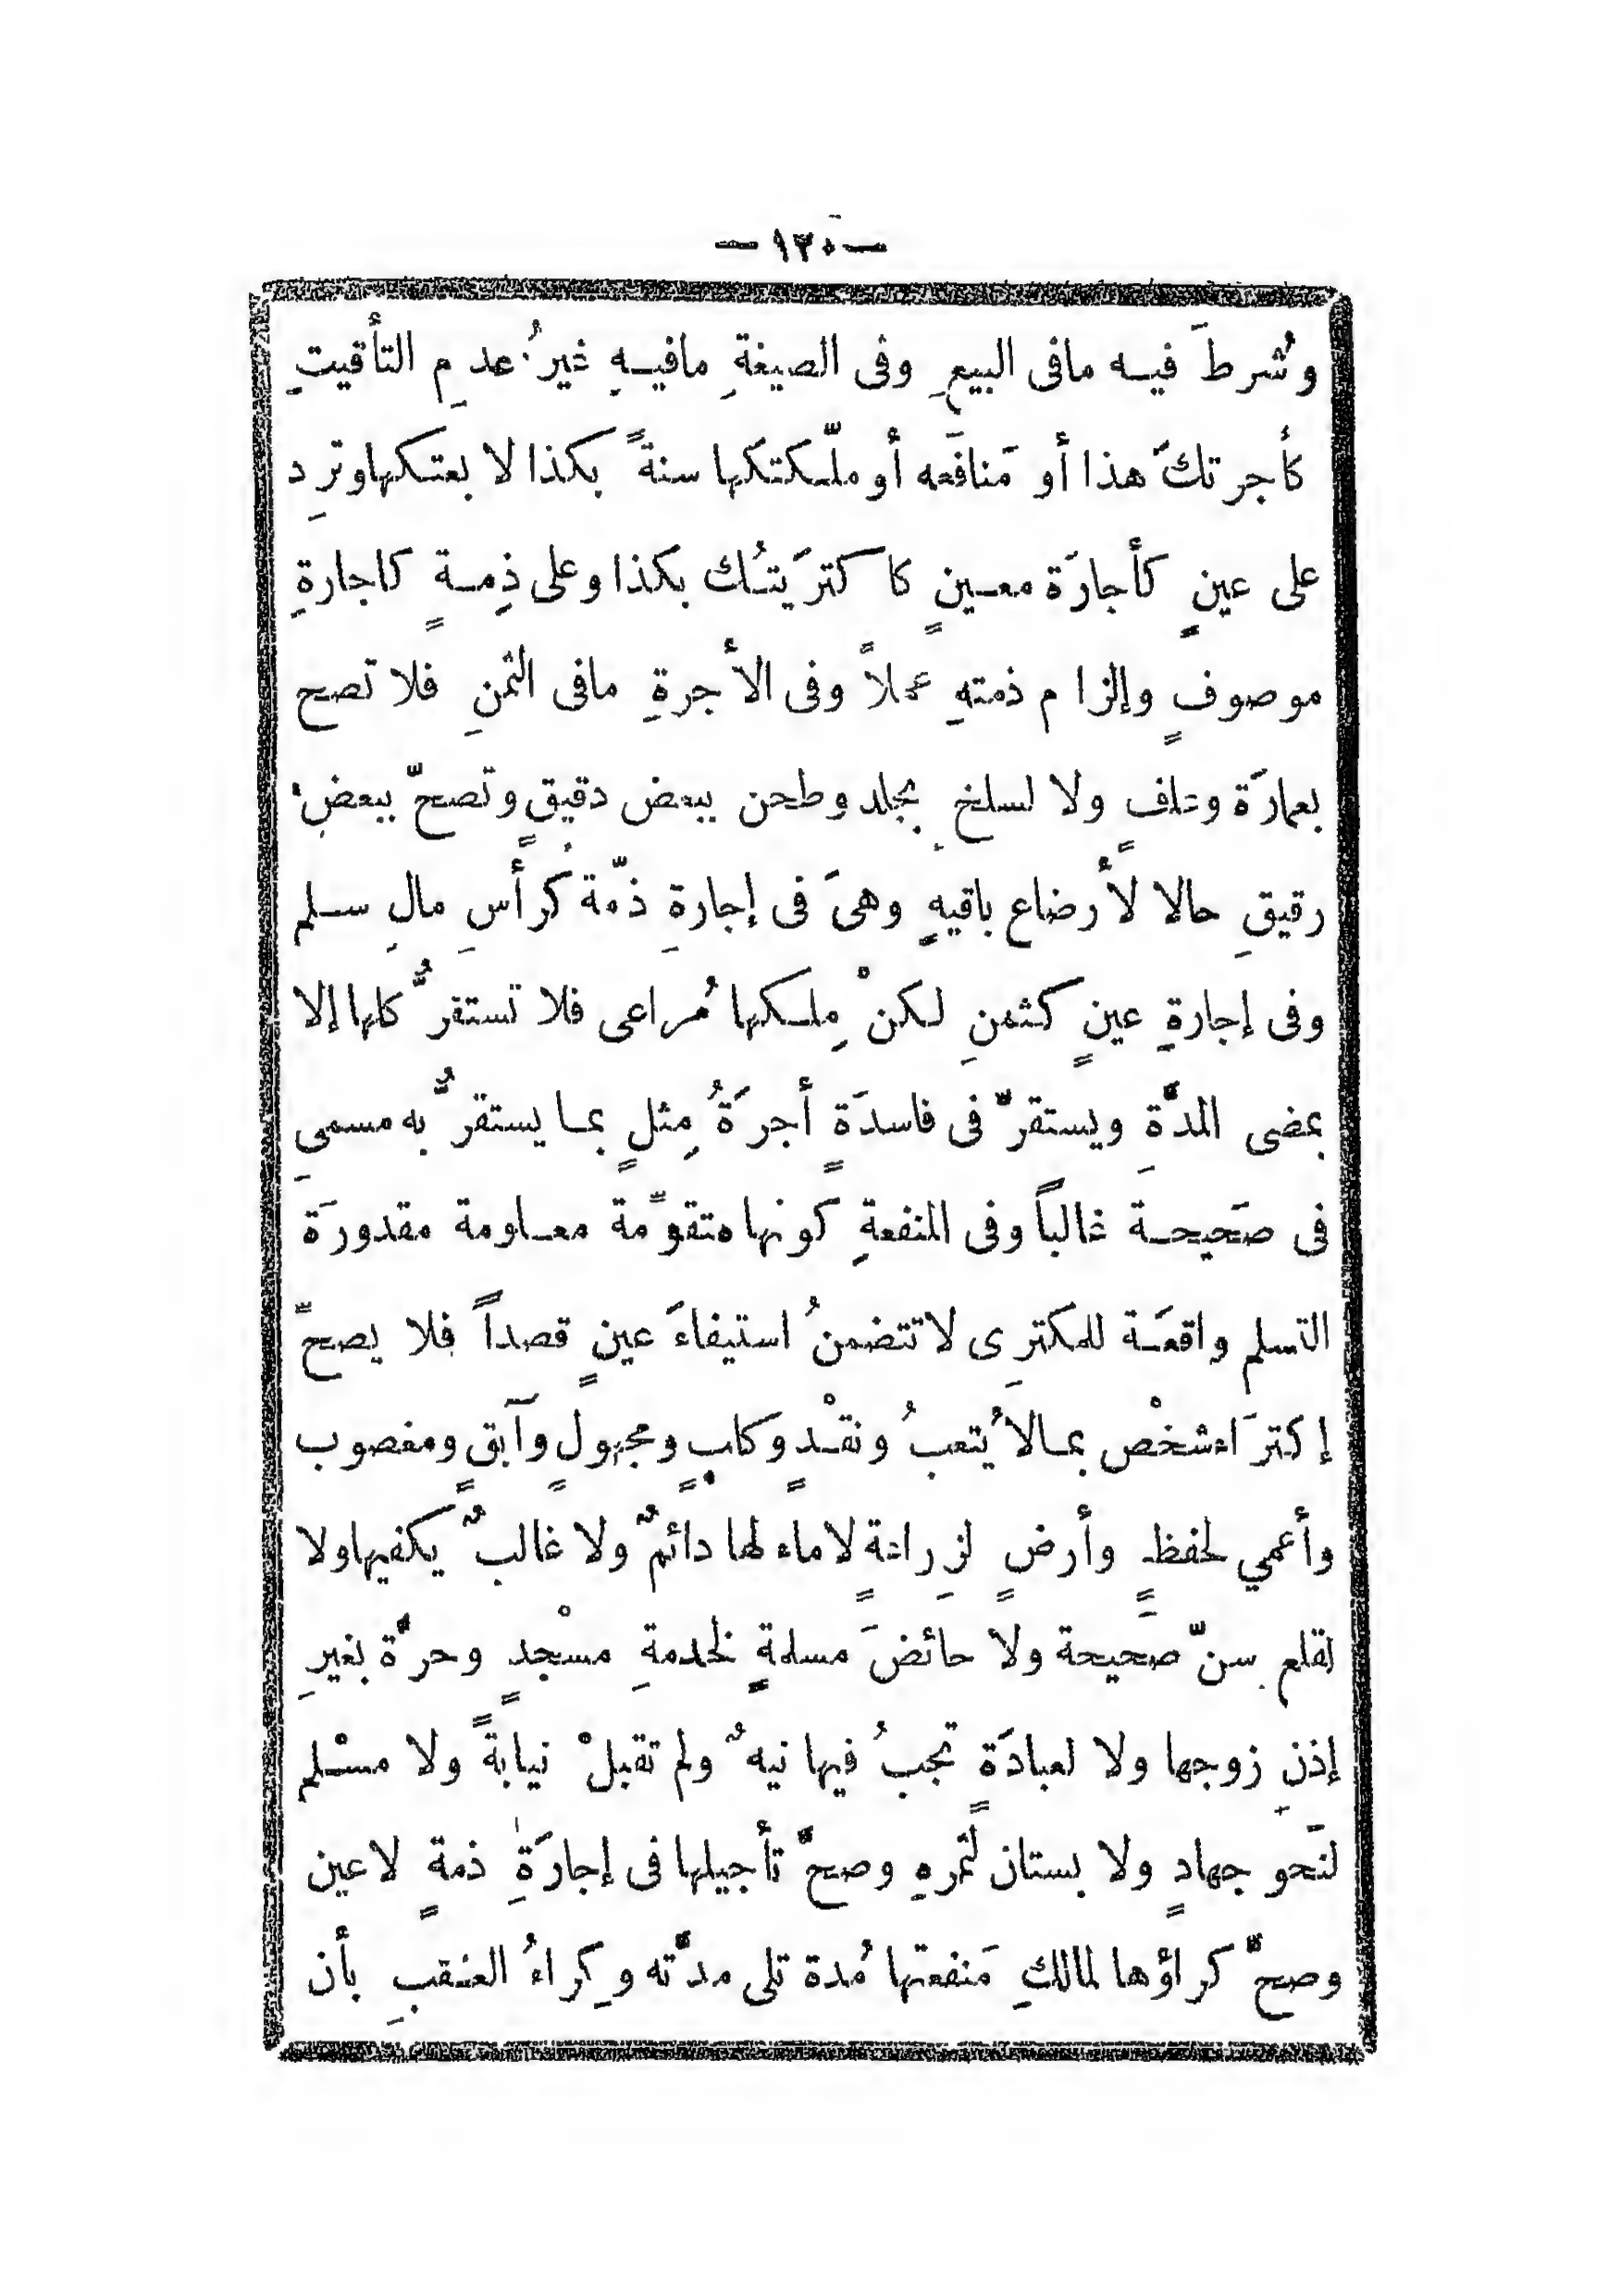 — ١٣٠ —
وشُرطَ فيه مافى البيعِ وفى الصيغةِ مافيهِ غيرُ عدمِ التأقيتِ
كأجرتكَ هذا أو مَنافعَه أو ملّكتكها سنةً بكذا لا بعتكها وتردِ
على عينٍ كأجارَة معينٍ كاكتريتُك بكذا وعلى ذِمةٍ كاجارةِ
موصوفٍ وإلزام ذمتهِ عملاً وفى الأجرةِ مافى الثمنِ فلا تصح
بعمارَة وعلفٍ ولا لسلخ بجلد وطحن ببعض دقيقٍ وتصحّ ببعضِ
رقيقِ حالا لأرضاع باقيهِ وهىَ فى إجارةِ ذمّة كرأسِ مالِ سلم
وفى إجارةِ عينٍ كثمنِ لكنْ مِلكها مُراعى فلا تستقرُّ كلها إلا
بمضى المدَّةِ ويستقرّ فى فاسدَةٍ أجرَةُ مِثلٍ بما يستقرُّ به مسمىِ
فى صَحيحة غالباً وفى المنفعةِ كونها متقوّمة معلومة مقدورَة
التسلم واقعَة للمكترِى لاتتضمنُ استيفاءَ عينٍ قصداً فلا يصحّ
إكترَاءشخْص بمالاُيتعبُ ونقْدٍ وكلبٍ ومجهولٍ وآبقٍ ومغصوب
وأعمي لحفظٍ وأرضٍ لزِراعةٍ لاماء لها دائمٌ ولا غالبٌ يكفيها ولا
لقلع سنّ صَحيحة ولا حائضَ مسلمةٍ لخدمةِ مسْجدٍ وحرَّة بغيرِ
إذنِ زوجها ولا لعبادَةٍ تجبُ فيها نيهٌ ولم تقبلْ نيابةً ولا مسْلم
لنَحو جهادٍ ولا بستان لثمرهِ وصحَّ تأجيلها فى إجارَةِ ذمةٍ لاعين
وصحَّ كراؤها لمالكِ مَنفعتها مُدة تلى مدَّته وكِراءُ العنقبِ بأن